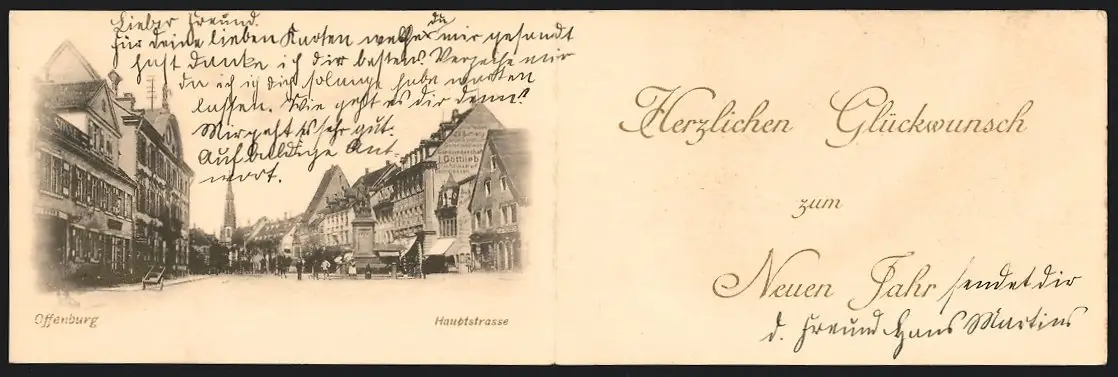 Lieber Freund.
für deine lieben Karten welche du mir gesandt
hast danke ich dir bestens. Verzeihe mir
da ich dich solange habe warten
lassen. Wie geht es dir denn?
Mir geht es sehr gut.
Auf baldige Ant
wort.
J. Gottlieb
Offenburg
Hauptstrasse
Herzlichen Glückwunsch
zum
Neuen Jahr sendet dir
d. Freund Hans Martins